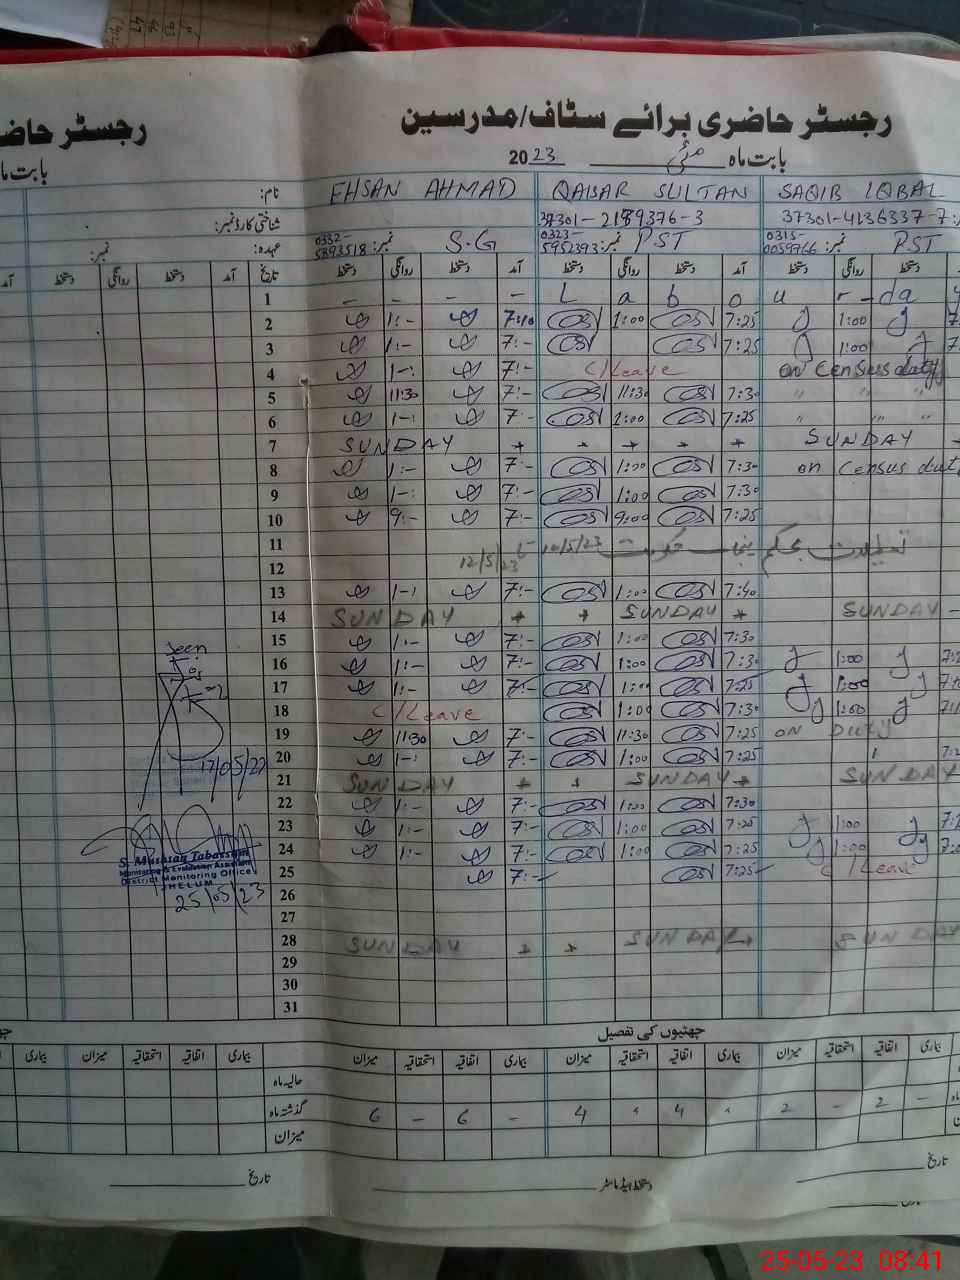 رجسٹر حاضری برائے سٹاف/مدرسین
بابت ماہ مئی 2023
نام: EHSAN AHMAD QAISAR SULTAN SAQIB IQBAL
شناختی کارڈ نمبر: 37301-2189376-3 37301-4136337-7
عہدہ: نمبر: 0332-5893518 S.G نمبر: 0323-5952393 PST نمبر: 0315-0059766 PST
تاریخ آمد دستخط روانگی دستخط آمد دستخط روانگی دستخط دستخط روانگی دستخط
1 - - - - L a b o u r - da
2 1:- 7:10 1:00 7:25 1:00
3 1:- 7:- 7:25 1:00
4 1-: 7:- C/Leave on Census duty
5 11:30 7:- 11:30 7:30 " " "
6 1-: 7:- 1:00 7:25 " " "
7 SUNDAY SUNDAY
8 1:- 7:- 1:00 7:30 on Census dut
9 1-: 7:- 1:00 7:30
10 9:- 7:- 9:00 7:25
11 تعطیلات بحکم پنجاب حکومت 10/5/23 تا
12 12/5/23
13 1-: 7:- 1:00 7:40
14 SUNDAY SUNDAY SUNDAY
15 1:- 7:- 1:00 7:30
16 1:- 7:- 1:00 7:30 1:00
17 1:- 7:- 1:00 7:25 1:00
18 C/Leave 1:00 7:30 1:00
19 11:30 7:- 11:30 7:25 on Duty
20 1-: 7:- 1:00 7:25
21 SUNDAY SUNDAY SUNDAY
22 1:- 7:- 1:00 7:30
23 1:- 7:- 1:00 7:25 1:00
24 1:- 7:- 1:00 7:25 1:00
25 7:- 7:25 C/Leave
26
27
28 SUNDAY SUNDAY SUNDAY
29
30
31
Seen
17/05/23
S. Mushtaq Tabassum
Monitoring & Evaluation Assistant
District Monitoring Office
JHELUM
25/05/23
چھٹیوں کی تفصیل
بیماری اتفاقیہ استحقاقیہ میزان بیماری اتفاقیہ استحقاقیہ میزان بیماری اتفاقیہ استحقاقیہ میزان
حالیہ ماہ
گذشتہ ماہ 6 - 6 - 4 " 4 " 2 - 2 -
میزان
تاریخ دستخط ہیڈ ماسٹر تاریخ
25-05-23 08:41